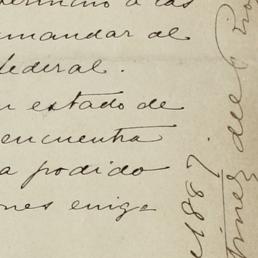 termino a las
mandar al
federal.
estado de
encuentra
a podido
nes exige
1887
tinez del Rio